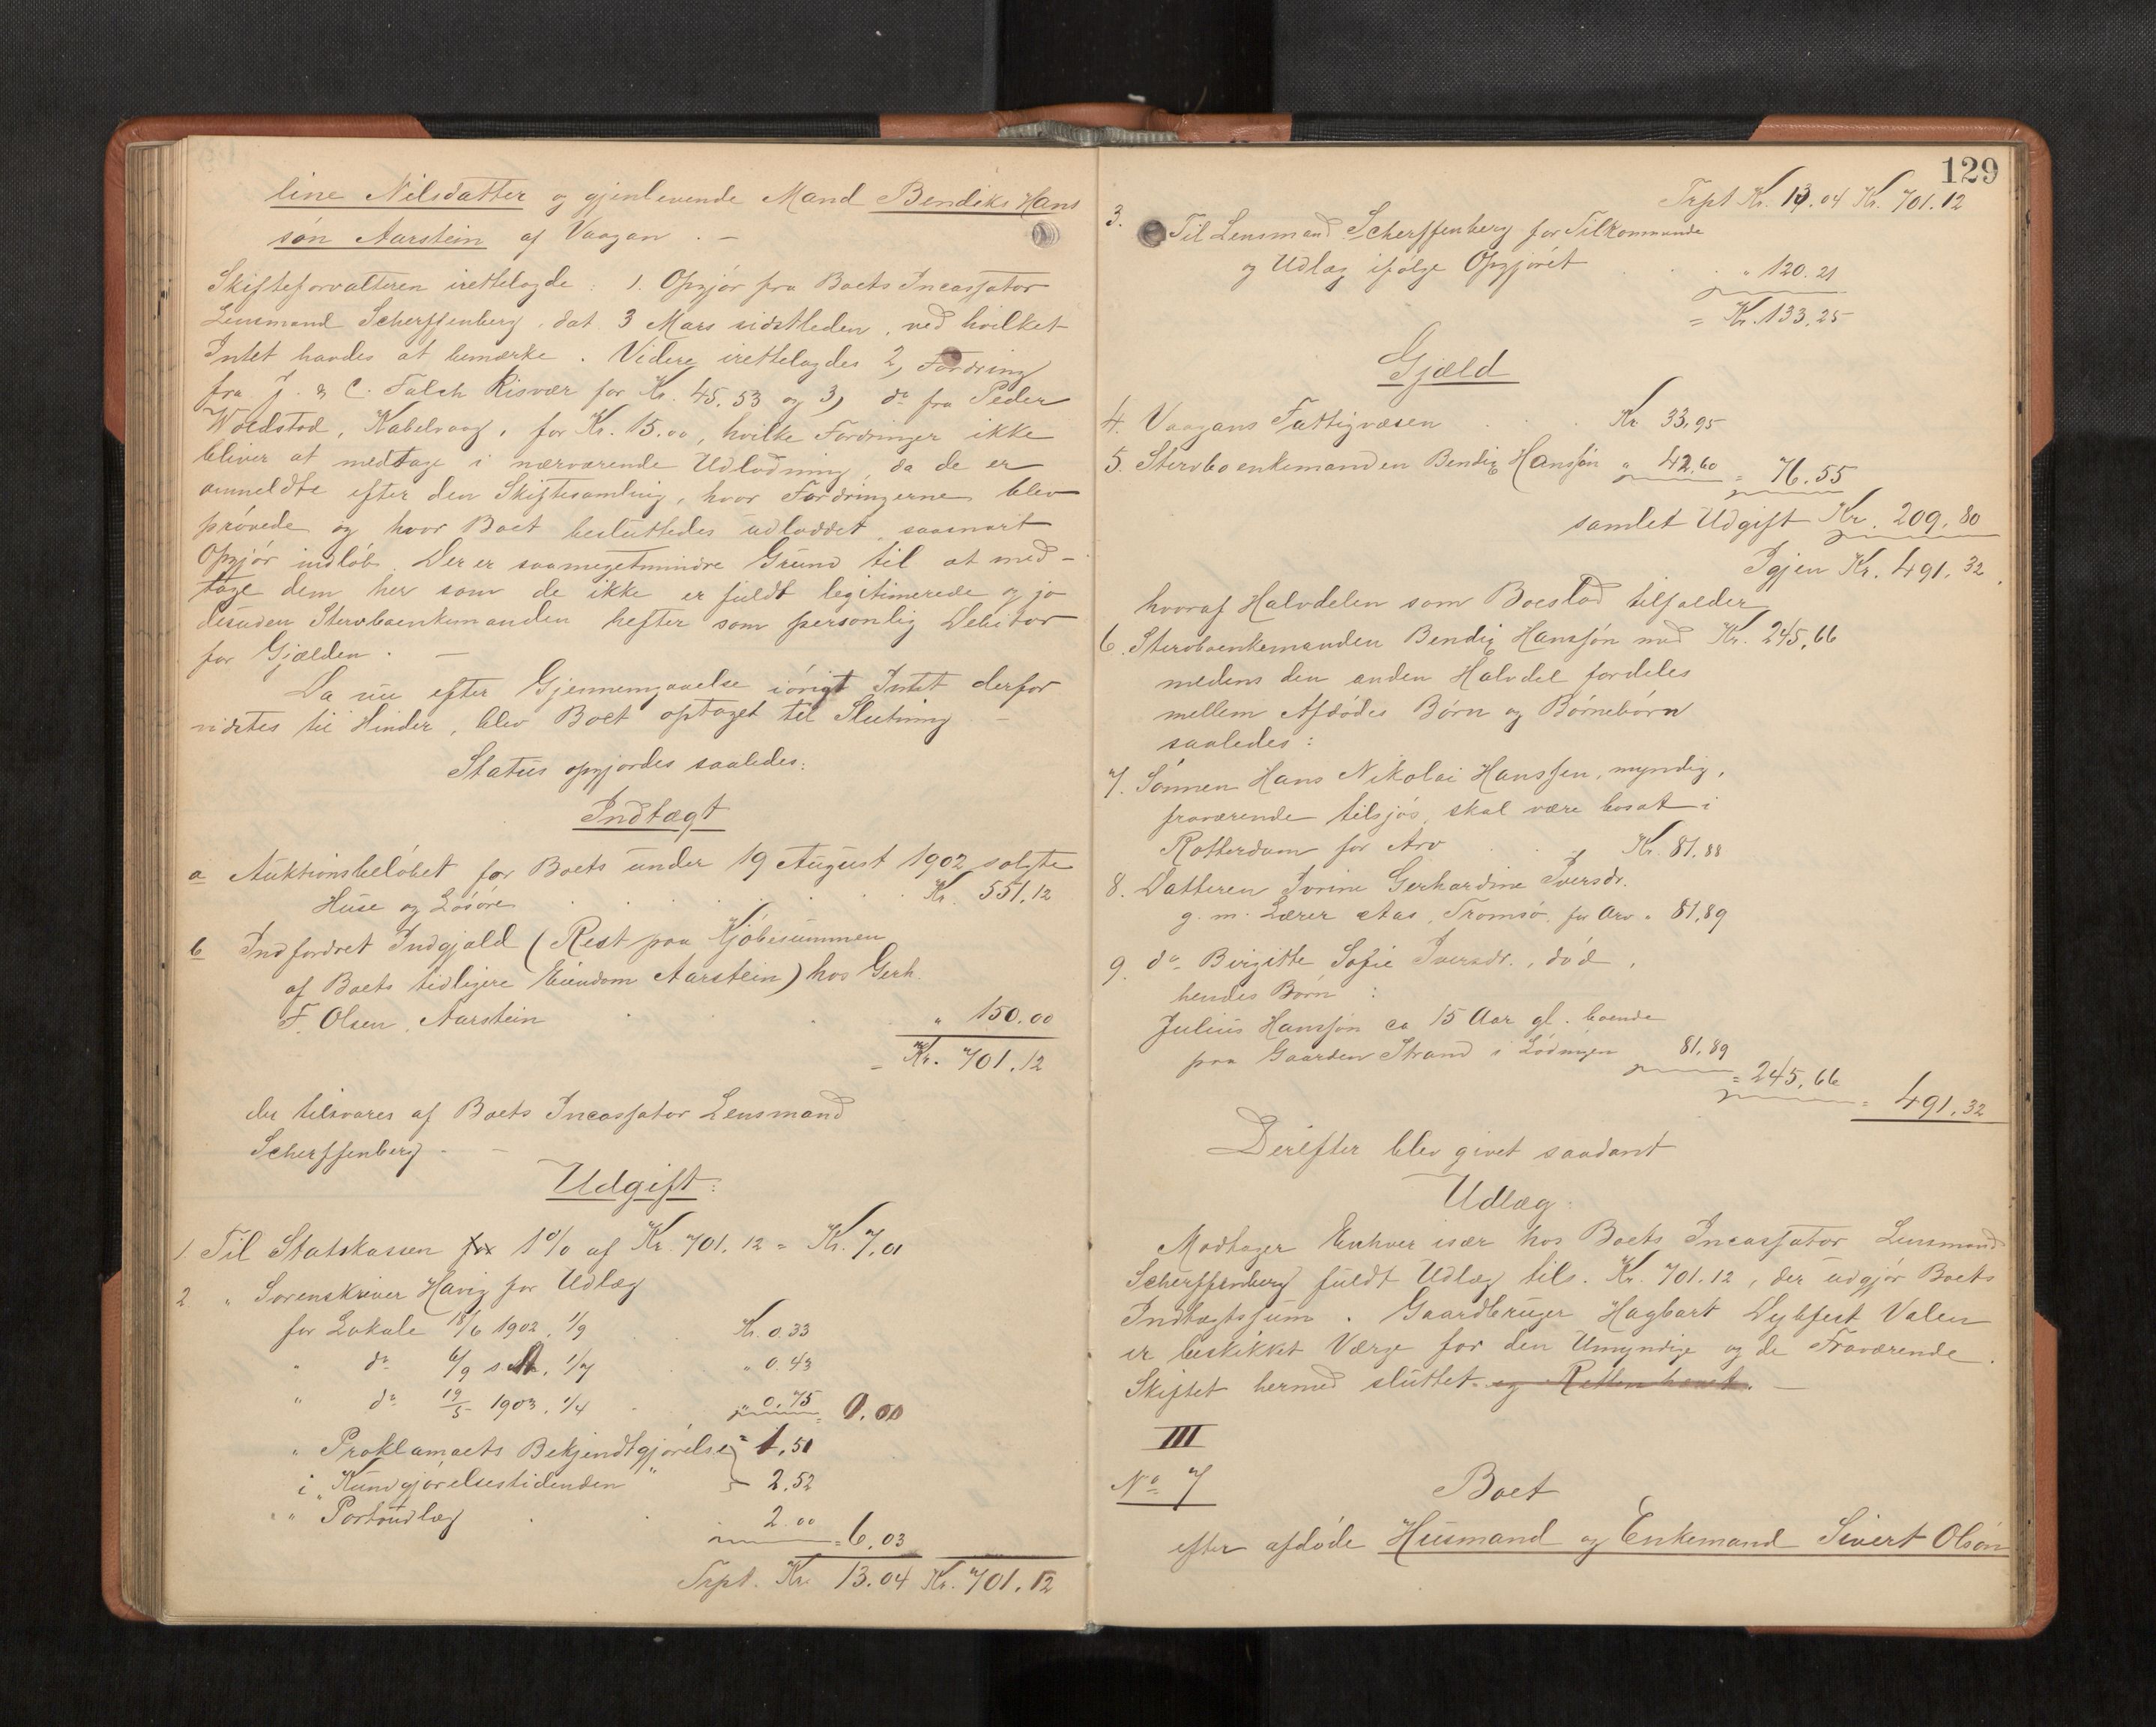 line Nilsdatter og gjenlevende Mand Bendiks Hans
søn Aarstein af Vaagan. —
Skifteforvalteren irettelagde: 1. Opgjør fra Boets Incassator
Lensmand Scherffenberg, dat 3 Mars sidstleden, ved hvilket
Intet havdes at bemærke. Videre irettelagdes 2, Fordring
fra J. & C. Falch Risvær for Kr. 45.53 og 3, do fra Peder
Woldstad, Kabelvaag, for Kr. 15.00, hvilke Fordringer ikke
bliver at medtage i nærværende Udlodning, da de er
anmeldte efter den Skiftesamling, hvor Fordringerne blev
prøvede og hvor Boet besluttedes udloddet, saasnart
Opgjør indløb. Der er saameget mindre Grund til at med-
tage dem her som de ikke er fuldt legitimerede og jo
desuden Stervboenkemanden hefter som personlig Debitor
for Gjælden. —
Da nu efter Gjennemgaaelse iøvrigt Intet derfor
vistes til Hinder, blev Boet optaget til Slutning —
Status opgjordes saaledes:
Indtægt
a Auktionsbeløbet for Boets under 19 August 1902 solgte
Huse og Løsøre . . . . Kr. 551,12
b Indfordret Indgjæld (Rest paa Kjøbesummen
af Boets tidligere Eiendom Aarstein) hos Gerh.
F. Olsen, Aarstein . . " 150.00
= Kr. 701,12
der tilsvares af Boets Incassator Lensmand
Scherffenberg. —
Udgift:
1. Til Statskassen for 1% af Kr. 701,12 = Kr. 7,01
2 " Sorenskriver Havig for Udlæg
for Lokale 18/6 1902, 1/9 . Kr. 0.33
" do 6/9 s.A., 1/7 . " 0.43
" do 19/5 1903, 1/4 . " 0,75 = 0.00
" Proklamaets Bekjendtgjørelse = 1,51
i "Kundgjørelsestidenden" 2,52
" " Portoudlæg . . 2.00
= 6,03
Trpt. Kr. 13.04 Kr. 701,12
129
Trpt Kr. 13.04 Kr. 701.12
3. Til Lensmand Scherffenberg for Tilkommende
og Udlæg ifølge Opgjøret . . " 120.21
= Kr. 133,25
Gjæld
4. Vaagans Fattigvæsen . . . Kr. 33,95
5. Stervboenkemanden Bendix Hanssøn " 42.60 = 76.55
samlet Udgift Kr. 209,80
Igjen Kr. 491,32
hvoraf Halvdelen som Boeslod tilfalder
6. Stervboenkemanden Bendix Hanssøn med Kr. 245,66
medens den anden Halvdel fordeles
mellem Afdødes Børn og Børnebørn
saaledes:
7. Sønnen Hans Nikolai Hanssen, myndig,
fraværende tilsjøs, skal være bosat i
Rotterdam for Arv . . . Kr. 81,88
8. Datteren Jorine Gerhardine Iversdr.
g. m. Lærer Aas, Tromsø, for Arv " 81,89
9. do Birgitte Sofie Iversdr., død,
hendes Børn:
Julius Hanssøn ca 15 Aar gl. boende
paa Gaarden Strand i Lødingen 81,89
= 245,66 = 491,32
Derefter blev givet saadant
Udlæg:
Modtager Enhver især hos Boets Incassator Lensmand
Scherffenberg fuldt Udlæg tils. Kr. 701.12, der udgjør Boets
Indtægtssum. Gaardbruger Hagbart Dybfest Valen
er beskikket Værge for den Umyndige og de Fraværende.
Skiftet hermed sluttet og Retten hævet. —
III
No 7 Boet
efter afdøde Husmand og Enkemand Sivert Olsøn